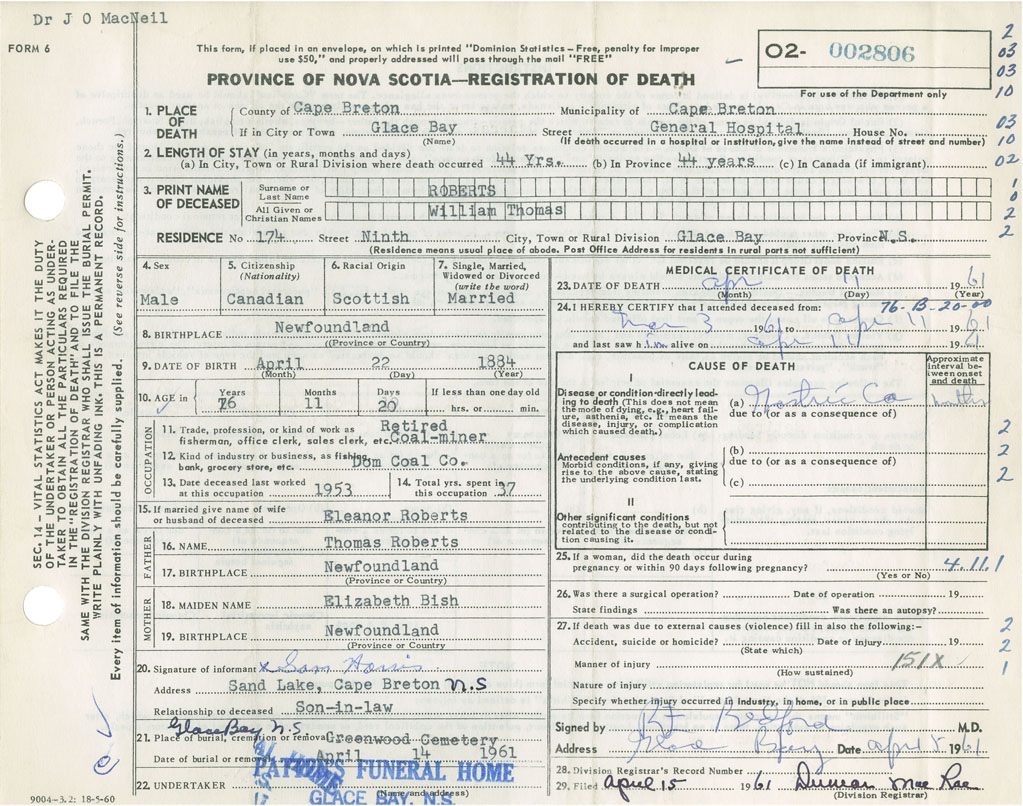 Dr J O MacNeil
FORM 6
This form, if placed in an envelope, on which is printed "Dominion Statistics – Free, penalty for improper
use $50," and properly addressed will pass through the mail "FREE"
PROVINCE OF NOVA SCOTIA—REGISTRATION OF DEATH
02- 002806
For use of the Department only
2
03
03
10
03
10
02
1
0
2
2
SEC. 14 – VITAL STATISTICS ACT MAKES IT THE DUTY
OF THE UNDERTAKER OR PERSON ACTING AS UNDER-
TAKER TO OBTAIN ALL THE PARTICULARS REQUIRED
IN THE "REGISTRATION OF DEATH" AND TO FILE THE
SAME WITH THE DIVISION REGISTRAR WHO SHALL ISSUE THE BURIAL PERMIT.
WRITE PLAINLY WITH UNFADING INK. THIS IS A PERMANENT RECORD.
Every item of information should be carefully supplied. (See reverse side for instructions.)
1. PLACE OF DEATH
County of Cape Breton Municipality of Cape Breton
If in City or Town Glace Bay Street General Hospital House No.
(Name) (If death occurred in a hospital or institution, give the name instead of street and number)
2. LENGTH OF STAY (in years, months and days)
(a) In City, Town or Rural Division where death occurred 44 Yrs. (b) In Province 44 years (c) In Canada (if immigrant)
3. PRINT NAME OF DECEASED
Surname or Last Name ROBERTS
All Given or Christian Names William Thomas
RESIDENCE No 174 Street Ninth City, Town or Rural Division Glace Bay Province N.S.
(Residence means usual place of abode. Post Office Address for residents in rural parts not sufficient)
4. Sex
Male
5. Citizenship (Nationality)
Canadian
6. Racial Origin
Scottish
7. Single, Married, Widowed or Divorced (write the word)
Married
8. BIRTHPLACE Newfoundland
(Province or Country)
9. DATE OF BIRTH April 22 1884
(Month) (Day) (Year)
10. AGE in Years Months Days If less than one day old
76 11 20 hrs. or min.
OCCUPATION
11. Trade, profession, or kind of work as Retired
fisherman, office clerk, sales clerk, etc. Coal-miner
12. Kind of industry or business, as fishing,
bank, grocery store, etc. Dom Coal Co.
13. Date deceased last worked at this occupation 1953
14. Total yrs. spent in this occupation 37
15. If married give name of wife
or husband of deceased Eleanor Roberts
FATHER
16. NAME Thomas Roberts
17. BIRTHPLACE Newfoundland
(Province or Country)
MOTHER
18. MAIDEN NAME Elizabeth Bish
19. BIRTHPLACE Newfoundland
(Province or Country
20. Signature of informant x Sam
Address Sand Lake, Cape Breton N.S
Relationship to deceased Son-in-law
Glace Bay N.S.
21. Place of burial, cremation or removal Greenwood Cemetery
Date of burial or removal April 14 1961
22. UNDERTAKER
(Name and address)
FUNERAL HOME
GLACE BAY, N.S.
9004–3.2: 18-5-60
MEDICAL CERTIFICATE OF DEATH
23. DATE OF DEATH apr 11 1961
(Month) (Day) (Year)
24. I HEREBY CERTIFY that I attended deceased from: 76-B-20-00
3 1961 to apr 11 1961
and last saw h im alive on apr 11 1961
CAUSE OF DEATH
Approximate interval between onset and death
I
Disease or condition directly leading to death (This does not mean the mode of dying, e.g., heart failure, asthenia, etc. It means the disease, injury, or complication which caused death.)
(a) Gastric Ca
due to (or as a consequence of)
Antecedent causes
Morbid conditions, if any, giving rise to the above cause, stating the underlying condition last.
(b)
due to (or as a consequence of)
(c)
2
2
2
II
Other significant conditions contributing to the death, but not related to the disease or condition causing it.
25. If a woman, did the death occur during
pregnancy or within 90 days following pregnancy? 4.11.1
(Yes or No)
26. Was there a surgical operation? Date of operation 19
State findings Was there an autopsy?
27. If death was due to external causes (violence) fill in also the following:–
Accident, suicide or homicide? Date of injury 19
(State which)
Manner of injury 151X
(How sustained)
Nature of injury
Specify whether injury occurred in Industry, in home, or in public place
2
2
1
Signed by Bedford M.D.
Address Glace Bay Date apr 1961
28. Division Registrar's Record Number
29. Filed april 15 1961 Duncan Mac Rae
(Division Registrar)